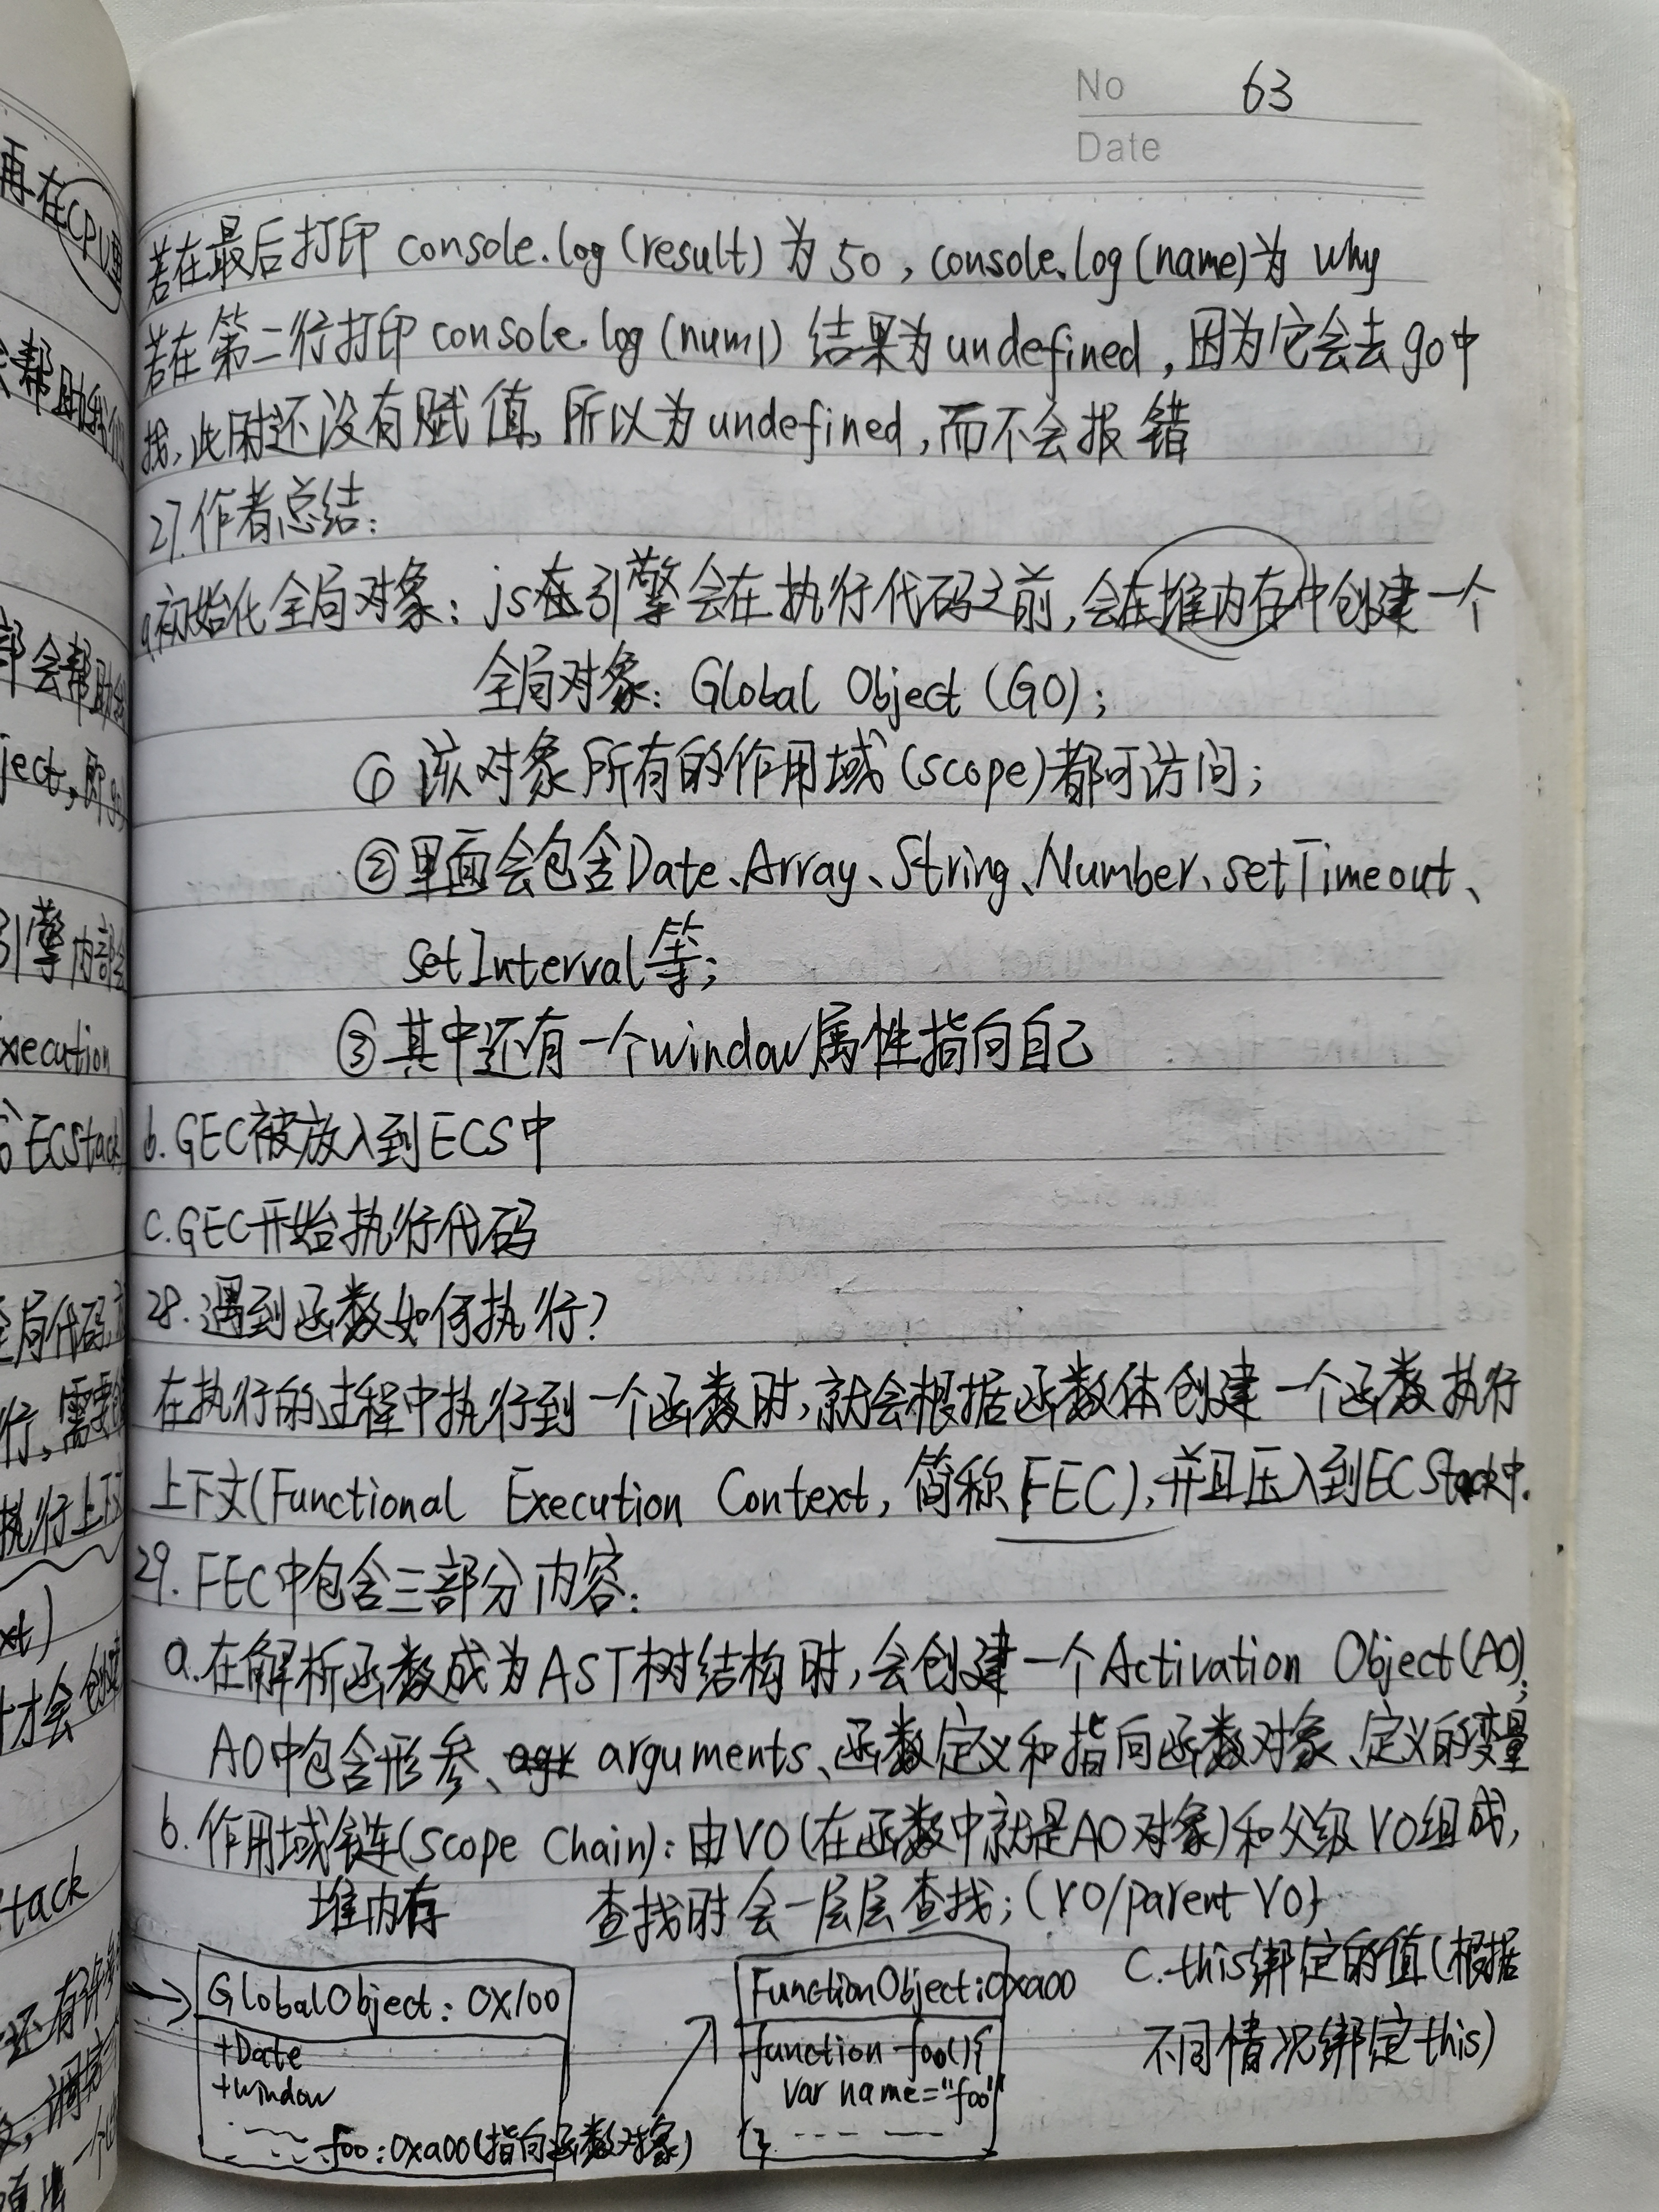 No 63
Date
若在最后打印 console.log(result) 为 50, console.log(name)为 why
若在第二行打印console.log(num1) 结果为undefined,因为它会去go中
找,此时还没有赋值,所以为undefined,而不会报错
27.作者总结:
a.初始化全局对象: js在引擎会在执行代码之前,会在堆内存中创建一个
全局对象: Global Object (GO);
① 该对象所有的作用域(scope)都可访问;
②里面会包含Date、Array、String、Number、setTimeout、
setInterval等;
③其中还有一个window属性指向自己
b.GEC被放入到ECS中
c.GEC开始执行代码
28.遇到函数如何执行?
在执行的过程中执行到一个函数时,就会根据函数体创建一个函数执行
上下文(Functional Execution Context, 简称FEC),并且压入到ECStack中.
29.FEC中包含三部分内容:
a.在解析函数成为AST树结构时,会创建一个Activation Object(AO);
AO中包含形参、arguments、函数定义和指向函数对象、定义的变量
b.作用域链(Scope Chain):由VO(在函数中就是AO对象)和父级VO组成,
查找时会一层层查找;(VO/parent VO)
堆内存
c.this绑定的值(根据
不同情况绑定this)
GlobalObject: 0x100
+Date
+window
foo:0xa00(指向函数对象)
FunctionObject:0xa00
function foo(){
var name="foo"
}
再在CPU里
会帮助我们
部会帮助我
ject,即go
引擎内部会
xecution
ECStack
全局代码
行,需要
执行上下文
xt)
才会创建
tack
还有许多